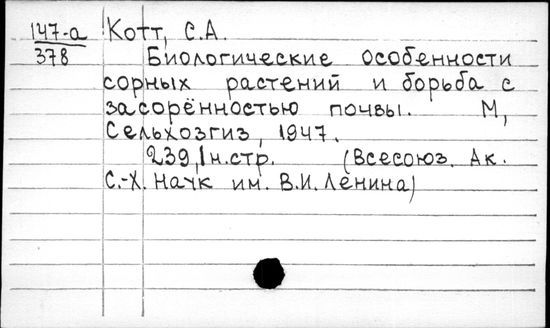 147-а Котт, С.А.
378
Биологические особенности
сорных растений и борьба с
засорённостью почвы. М,
Сельхозгиз, 1947.
239,1н.стр. (Всесоюз. Ак.
С.-Х. Наук им. В.И. Ленина)